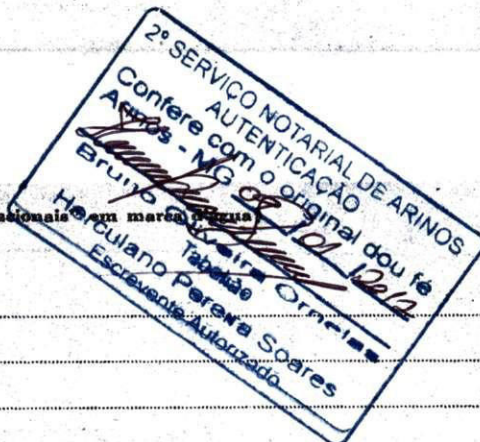 2º SERVIÇO NOTARIAL DE ARINOS
AUTENTICAÇÃO
Confere com o original dou fé
Arinos - MG 09 / 01 /
Bruno Oliveira Ornelas
Tabelião
Herculano Pereira Soares
Escrevente Autorizado
em marca d'agua)